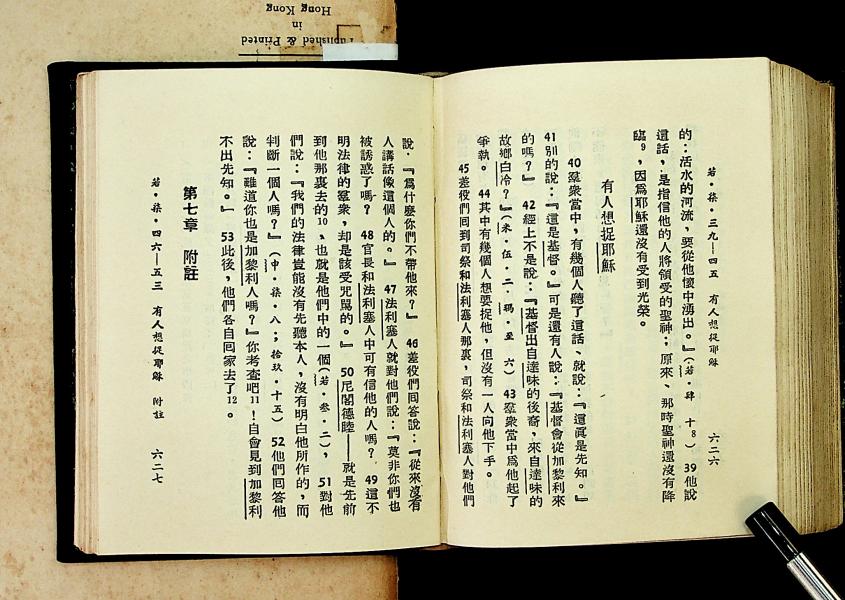 Published & Printed
in
Hong Kong
若·柒·三九—四五 有人想捉耶穌 六二六
的:活水的河流,要從他懷中湧出。』(若·肆 十8) 39他說
這話,是指信他的人將領受的聖神;原來、那時聖神還沒有降
臨9,因爲耶穌還沒有受到光榮。
有人想捉耶穌
40羣衆當中,有幾個人聽了這話、就說:『這眞是先知。』
41別的說:『這是基督。』可是還有人說:『基督會從加黎利來
的嗎?』 42經上不是說:『基督出自達味的後裔,來自達味的
故鄉白冷?』(米·伍·二·瑪· 六) 43羣衆當中爲他起了
爭執。 44其中有幾個人想要捉他,但沒有一人向他下手。
45差役們囘到司祭和法利塞人那裏,司祭和法利塞人對他們
說·『爲什麼你們不帶他來?』 46差役們囘答說:『從來沒有
人講話像這個人的。』 47法利塞人就對他們說:『莫非你們也
被誘惑了嗎? 48官長和法利塞人中可有信他的人嗎? 49這不
明法律的羣衆,却是該受咒罵的。』 50尼閣德睦——就是先前
到他那裏去的10、也就是他們中的一個(若·叁·二), 51對他
們說:『我們的法律豈能沒有先聽本人,沒有明白他所作的,而
判斷一個人嗎?』(申·柒·八;拾玖·十五) 52他們囘答他
說:『難道你也是加黎利人嗎?』你考查吧11!自會見到加黎利
不出先知。』 53此後,他們各自囘家去了12。
第七章 附註
若·柒·四六—五三 有人想捉耶穌 附註 六二七